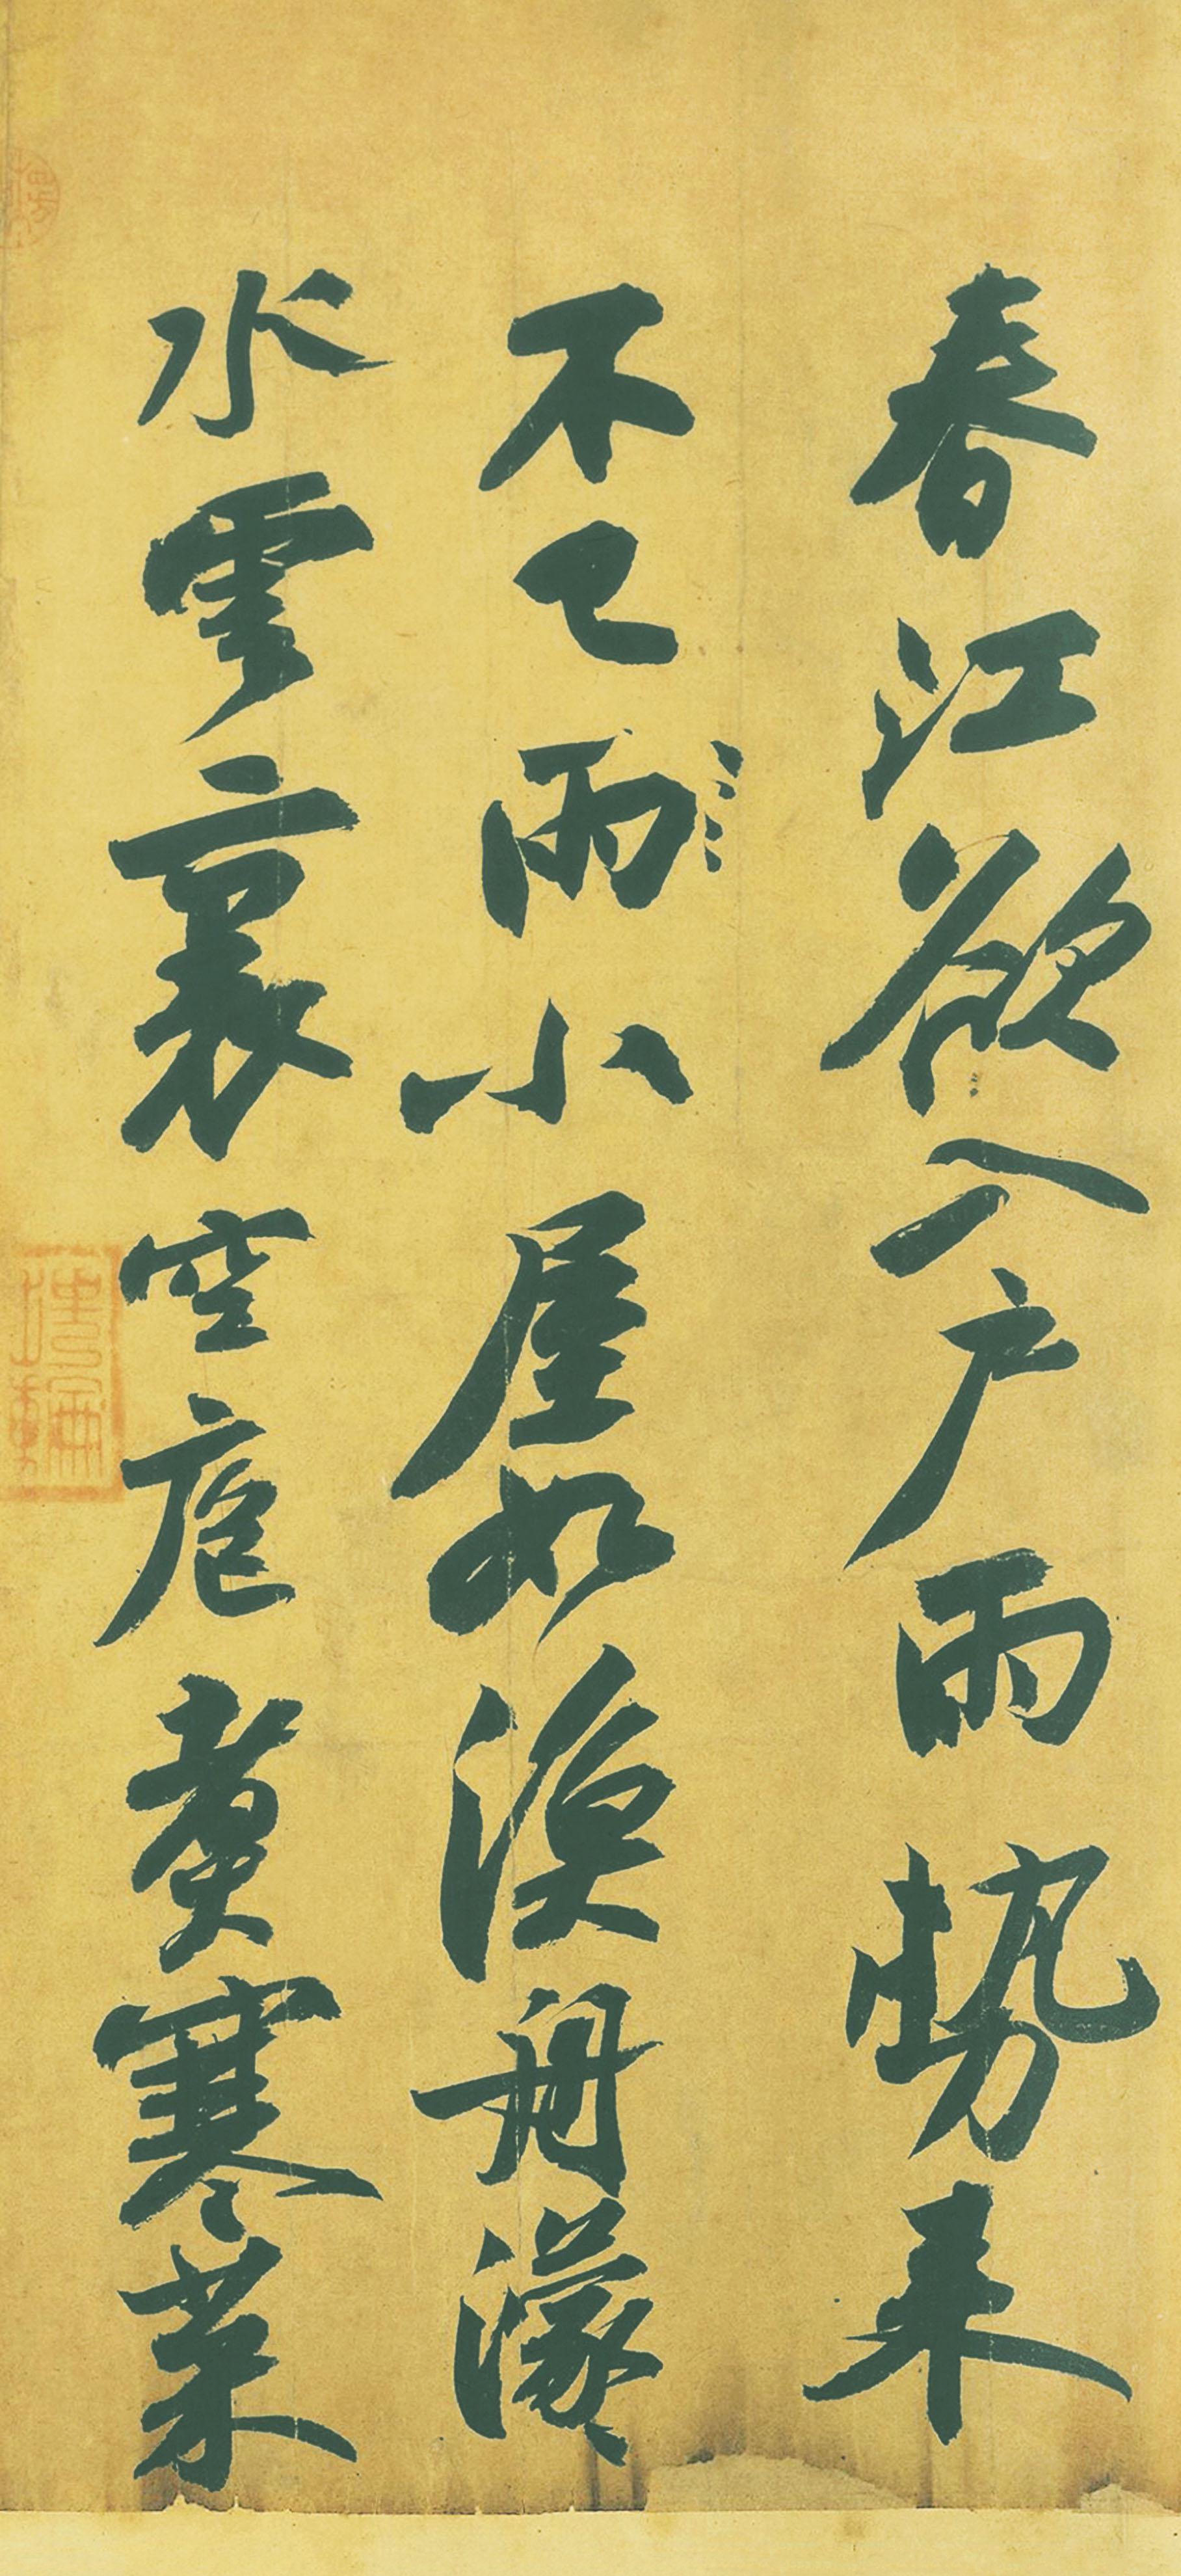 春江欲入戶雨勢來
不已雨小屋如漁舟濛〻
水雲裏空庖煮寒菜